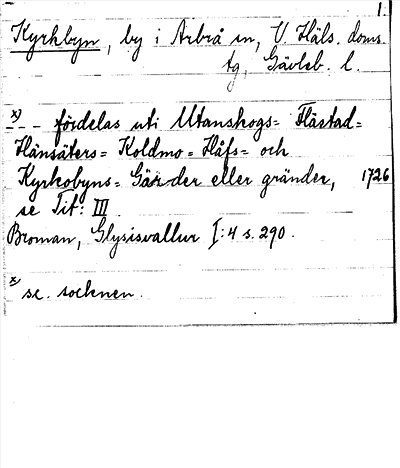 1.
Kyrkbyn, by i Arbrå sn, V. Häls. doms.
tg, Gävleb. l.
x) - - fördelas uti Utanskogs= Flästad=
Hänsäters= Koldmo= Håfs= och
Kyrkobyns= Gärder eller gränder, 1726
se Tit: III
Broman, Glysisvallur I:4 s. 290.
x) sc. socknen.